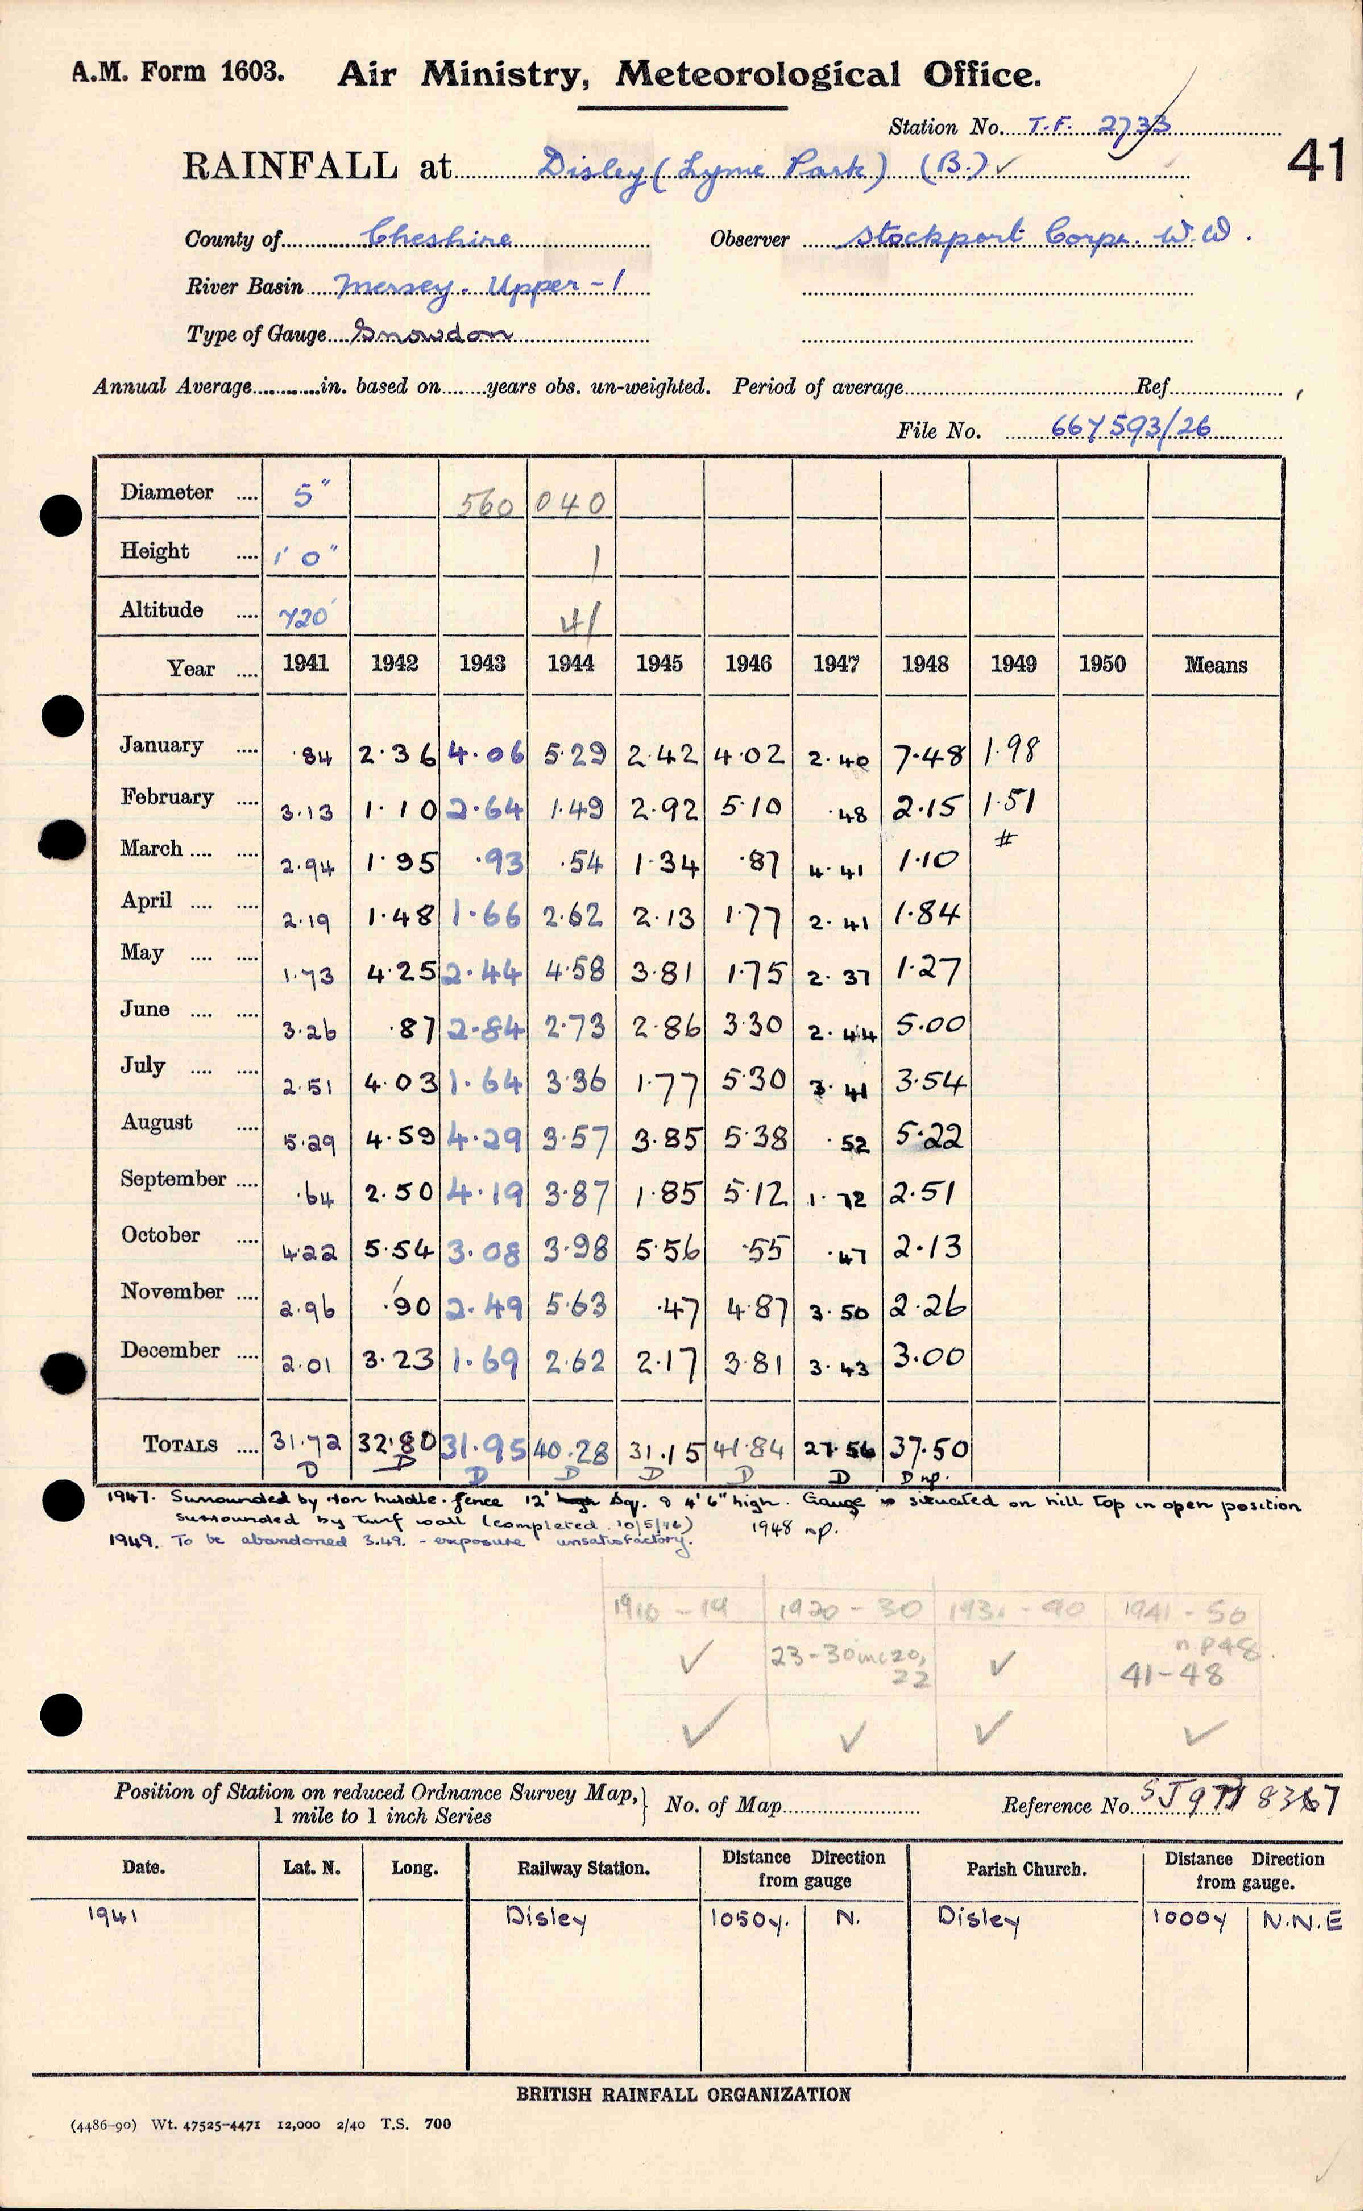 A.M. Form 1603. Air Ministry, Meteorological Office.
Station No. T.F. 2733
41
RAINFALL at Disley (Lyme Park) (B.) ✓
County of Cheshire Observer Stockport Corpn. W.W.
River Basin Mersey. Upper - 1
Type of Gauge Snowdon
Annual Average in. based on years obs. un-weighted. Period of average Ref.
File No. 667593/26
Diameter 5" 560 040
Height 1' 0" 1
Altitude 720' 41
Year 1941 1942 1943 1944 1945 1946 1947 1948 1949 1950 Means
January ·84 2·36 4·06 5·29 2·42 4·02 2·40 7·48 1·98
February 3·13 1·10 2·64 1·49 2·92 5·10 ·48 2·15 1·51
March 2·94 1·95 ·93 ·54 1·34 ·87 4·41 1·10 #
April 2·19 1·48 1·66 2·62 2·13 1·77 2·41 1·84
May 1·73 4·25 2·44 4·58 3·81 1·75 2·37 1·27
June 3·26 ·87 2·84 2·73 2·86 3·30 2·44 5·00
July 2·51 4·03 1·64 3·36 1·77 5·30 3·41 3·54
August 5·29 4·59 4·29 3·57 3·85 5·38 ·52 5·22
September ·64 2·50 4·19 3·87 1·85 5·12 1·72 2·51
October 4·22 5·54 3·08 3·98 5·56 ·55 ·47 2·13
November 2·96 ·90 2·49 5·63 ·47 4·87 3·50 2·26
December 2·01 3·23 1·69 2·62 2·17 3·81 3·43 3·00
TOTALS 31·72 32·80 31·95 40·28 31·15 41·84 27·56 37·50
D D D D D D D D np.
1947. Surrounded by iron hurdle fence 12' high sq. & 4' 6" high. Gauge is situated on hill top in open position
surrounded by turf wall (completed 10/5/46) 1948 np.
1949. To be abandoned 3.49. - exposure unsatisfactory.
1910 - 19 1920 - 30 1931 - 40 1941 - 50
✓ 23 - 30 inc 20, 22 ✓ np 48. 41 - 48
✓ ✓ ✓ ✓
Position of Station on reduced Ordnance Survey Map, 1 mile to 1 inch Series } No. of Map Reference No. SJ 97 836
Date. Lat. N. Long. Railway Station. Distance Direction from gauge Parish Church. Distance Direction from gauge.
1941 Disley 1050y. N. Disley 1000y N.N.E
BRITISH RAINFALL ORGANIZATION
(4486-90) Wt. 47525-4471 12,000 2/40 T.S. 700